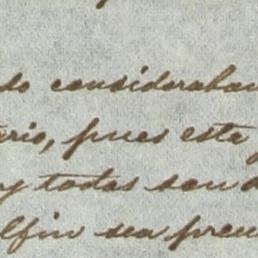 do consideraban
erio, pues esta
y todas son d
Alfin sea preu